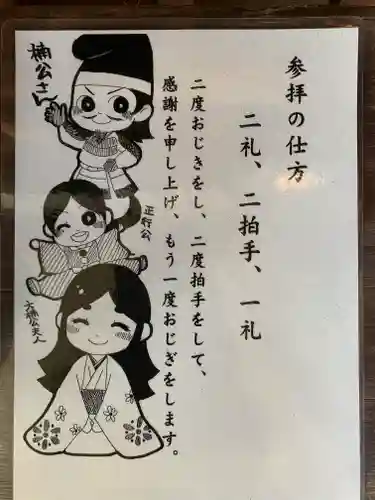 参拝の仕方
二礼、二拍手、一礼
二度おじきをし、二度拍手をして、
感謝を申し上げ、もう一度おじぎをします。
楠公さん
正行公
大楠公夫人